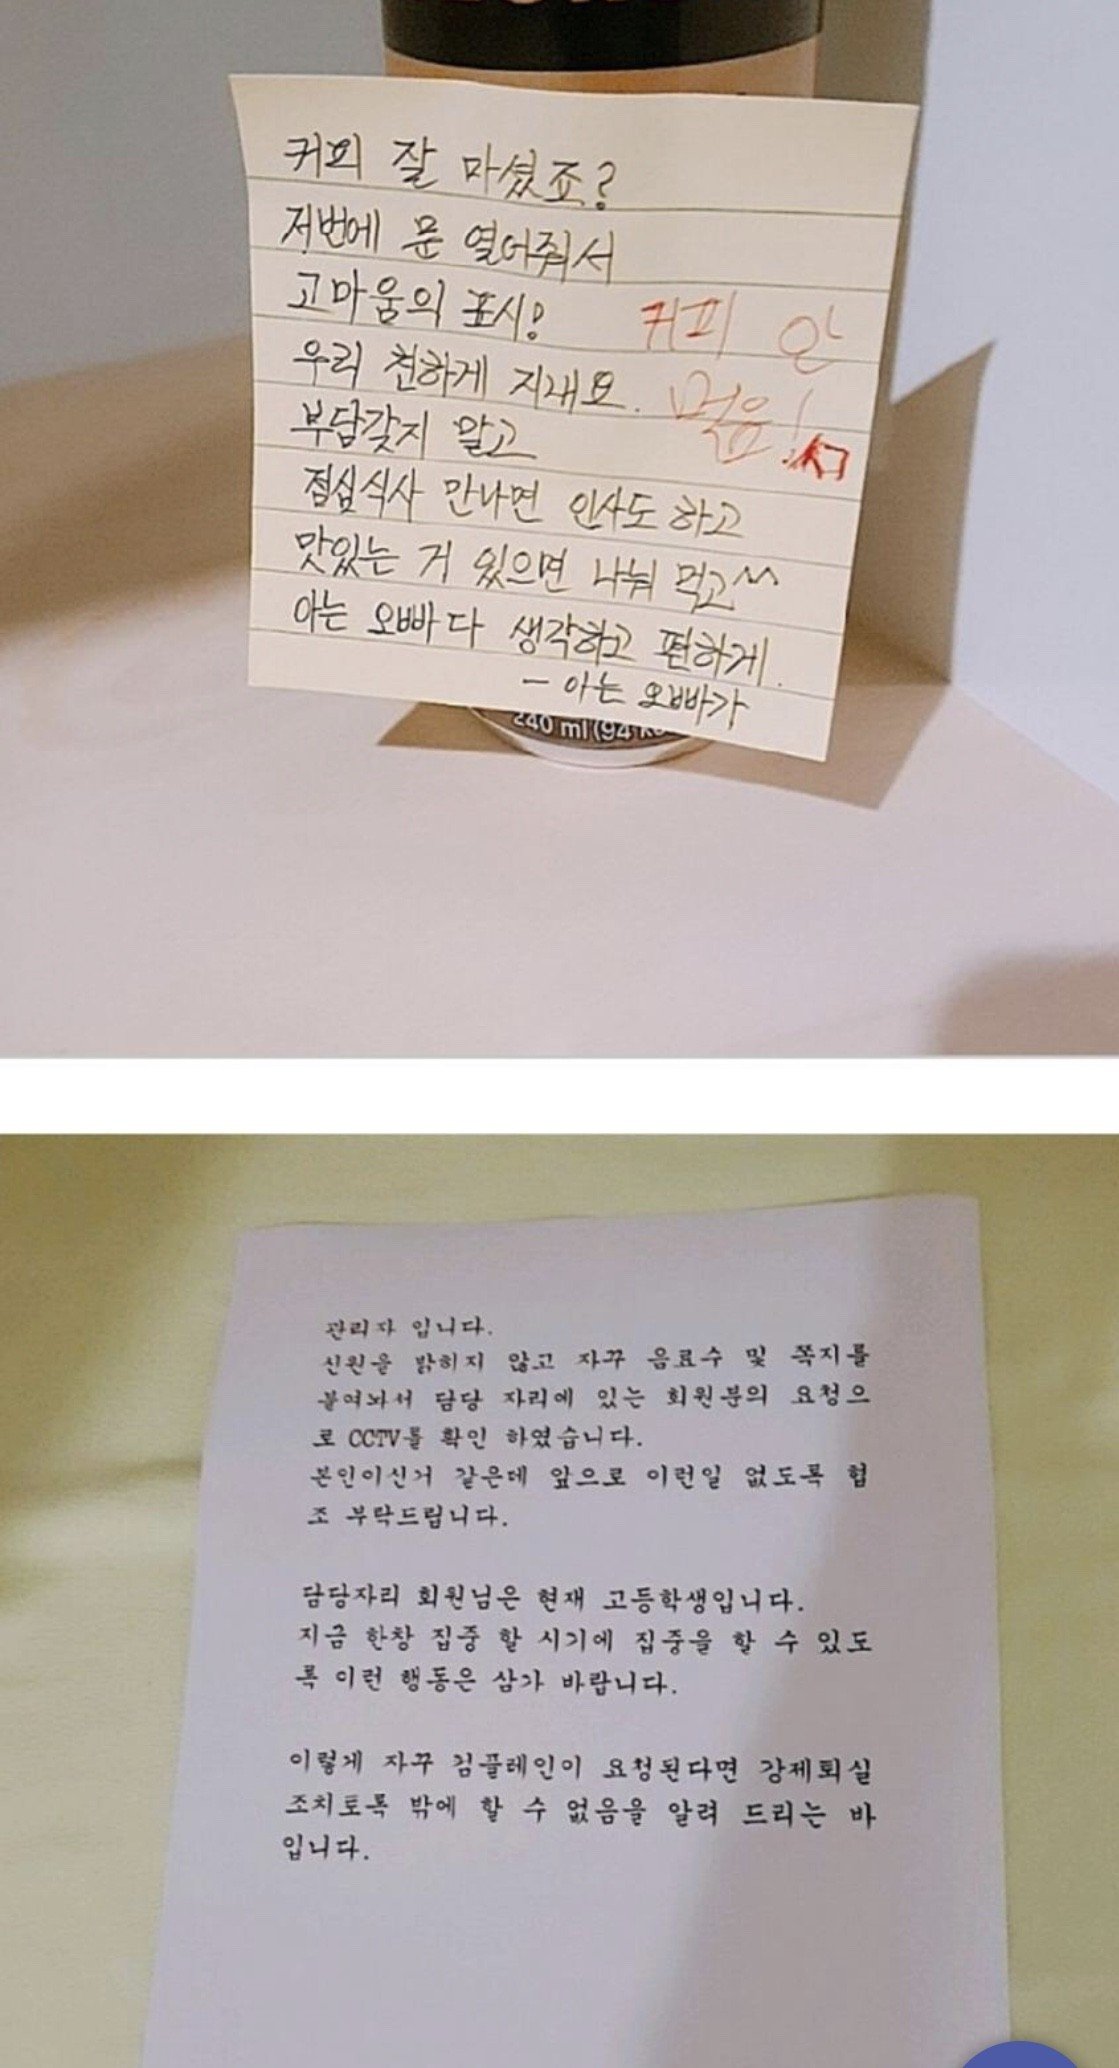 커피 잘 마셨죠?
저번에 문 열어줘서
고마움의 표시!
우리 친하게 지내요.
부담갖지 말고
점심식사 만나면 인사도 하고
맛있는 거 있으면 나눠 먹고^^
아는 오빠다 생각하고 편하게.
- 아는 오빠가
커피 안
먹음!
240 ml (94
관리자 입니다.
신원을 밝히지 않고 자꾸 음료수 및 쪽지를
붙여놔서 담당 자리에 있는 회원분의 요청으
로 CCTV를 확인 하였습니다.
본인이신거 같은데 앞으로 이런일 없도록 협
조 부탁드립니다.
담당자리 회원님은 현재 고등학생입니다.
지금 한창 집중 할 시기에 집중을 할 수 있도
록 이런 행동은 삼가 바랍니다.
이렇게 자꾸 김플레인이 요청된다면 강제퇴실
조치토록 밖에 할 수 없음을 알려 드리는 바
입니다.